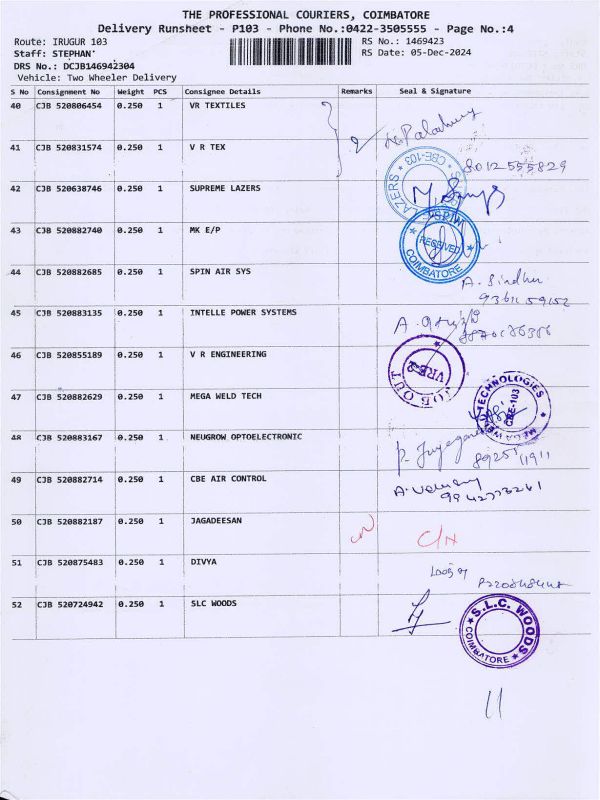 THE PROFESSIONAL COURIERS, COIMBATORE
Delivery Runsheet - P103 - Phone No.:0422-3505555 - Page No.:4
Route: IRUGUR 103 RS No.: 1469423
Staff: STEPHAN' RS Date: 05-Dec-2024
DRS No.: DCJB146942304
Vehicle: Two Wheeler Delivery
S No Consignment No Weight PCS Consignee Details Remarks Seal & Signature
40 CJB 520806454 0.250 1 VR TEXTILES
41 CJB 520831574 0.250 1 V R TEX
8012555829
42 CJB 520638746 0.250 1 SUPREME LAZERS
LAZERS CBE-103
43 CJB 520882740 0.250 1 MK E/P
RECEIVED
COIMBATORE
44 CJB 520882685 0.250 1 SPIN AIR SYS
A. Sindhu
45 CJB 520883135 0.250 1 INTELLE POWER SYSTEMS
46 CJB 520855189 0.250 1 V R ENGINEERING
VRE-2
JOB OUT
47 CJB 520882629 0.250 1 MEGA WELD TECH
MEGA WELD TECHNOLOGIES
CBE-103
48 CJB 520883167 0.250 1 NEUGROW OPTOELECTRONIC
49 CJB 520882714 0.250 1 CBE AIR CONTROL
50 CJB 520882187 0.250 1 JAGADEESAN
51 CJB 520875483 0.250 1 DIVYA
52 CJB 520724942 0.250 1 SLC WOODS
S.L.C. WOODS
COIMBATORE
11